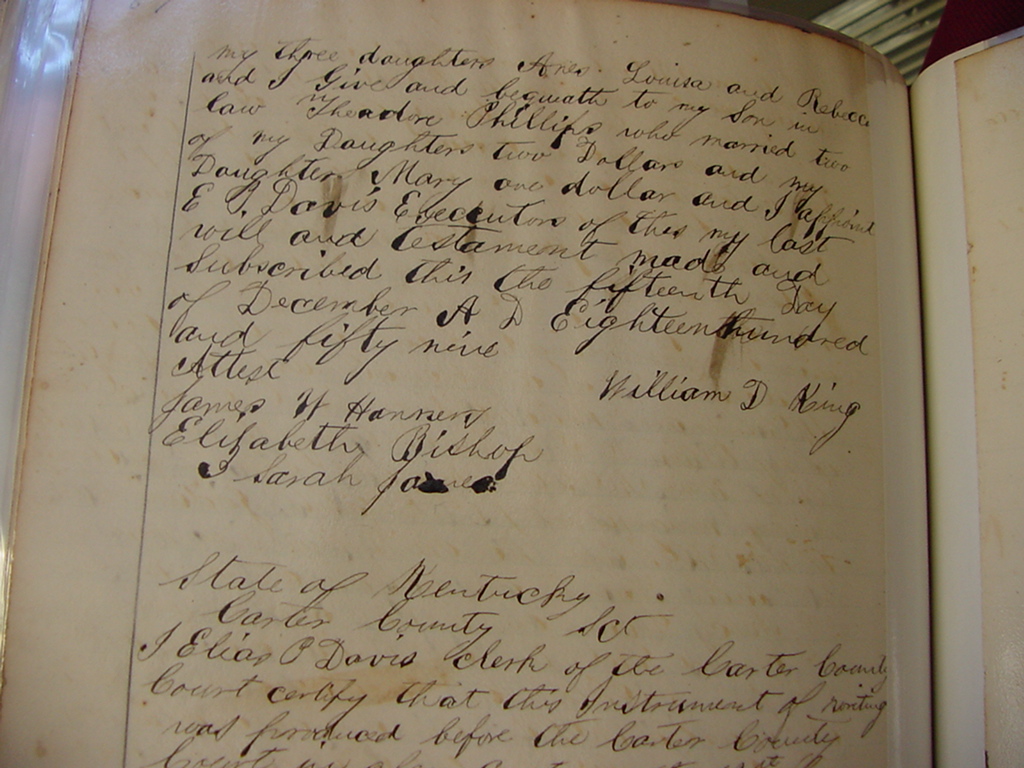 my three daughters Ares. Louisa and Rebeca
and I Give and bequeath to my Son in
law my Theadre Phillips who married two
of my Daughters two Dollars and my two
Daughter Mary one dollar and I appoint
E P Davis Executore of this my last
will and testament made and
Subscribed this the fifteenth day
of December A D Eighteenhundred
and fifty nine
Attest
William D King
James W Hanners
Elizabeth Bishop
Sarah Jones
State of Kentucky
Carter County Sct.
I Elias P Davis Clerk of the Carter County
Court certify that this Instrument of writing
was produced before the Carter County